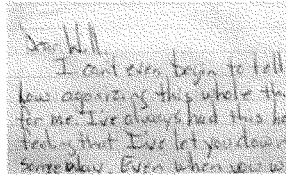 Dear Will,
I can't even begin to tell
how agonizing this whole th
for me. I've always had this he
feeling that I've let you down
someway. Even when you w